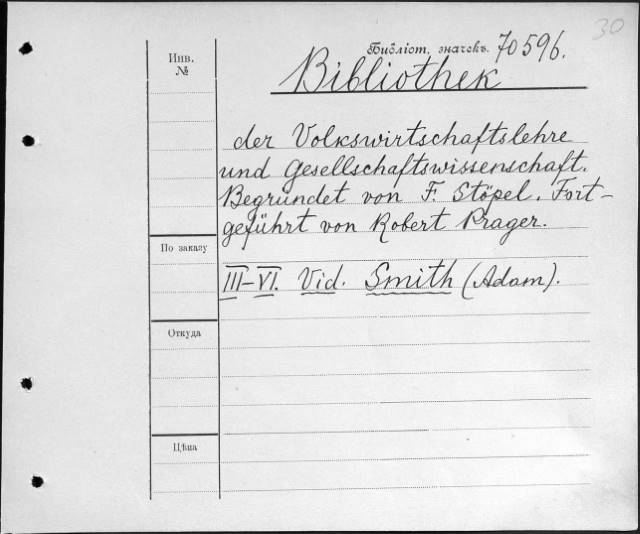 30
Библіот. значекъ. 70596.
Инв.
№
Bibliothek
der Volkswirtschaftslehre
und Gesellschaftswissenschaft.
Begründet von F. Stöpel. Fort-
geführt von Robert Prager.
По заказу
III–VI. Vid. Smith (Adam).
Откуда
Цѣна